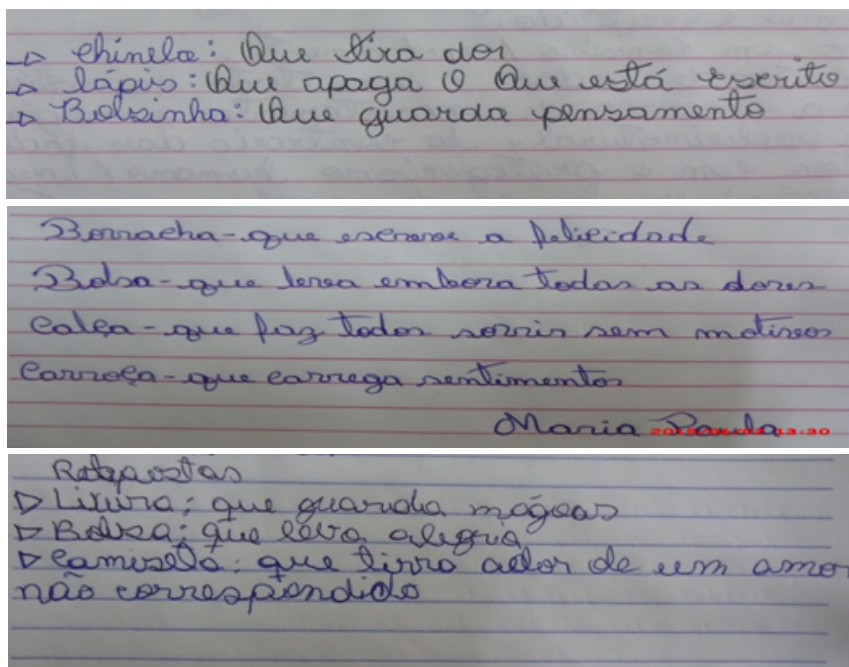 → chinela: Que tira dor
→ lápis: Que apaga o Que está escrito
→ Bolsinha: Que guarda pensamento
Borracha - que escreve a felicidade
Bolsa - que leva embora todas as dores
Calça - que faz todos sorrir sem motivos
Carroça - que carrega sentimentos
Maria Paula
Respostas
▷ Lixeira: que guarda mágoas
▷ Bolsa: que leva alegria
▷ Camiseta: que tirra ador de um amor
não correspondido